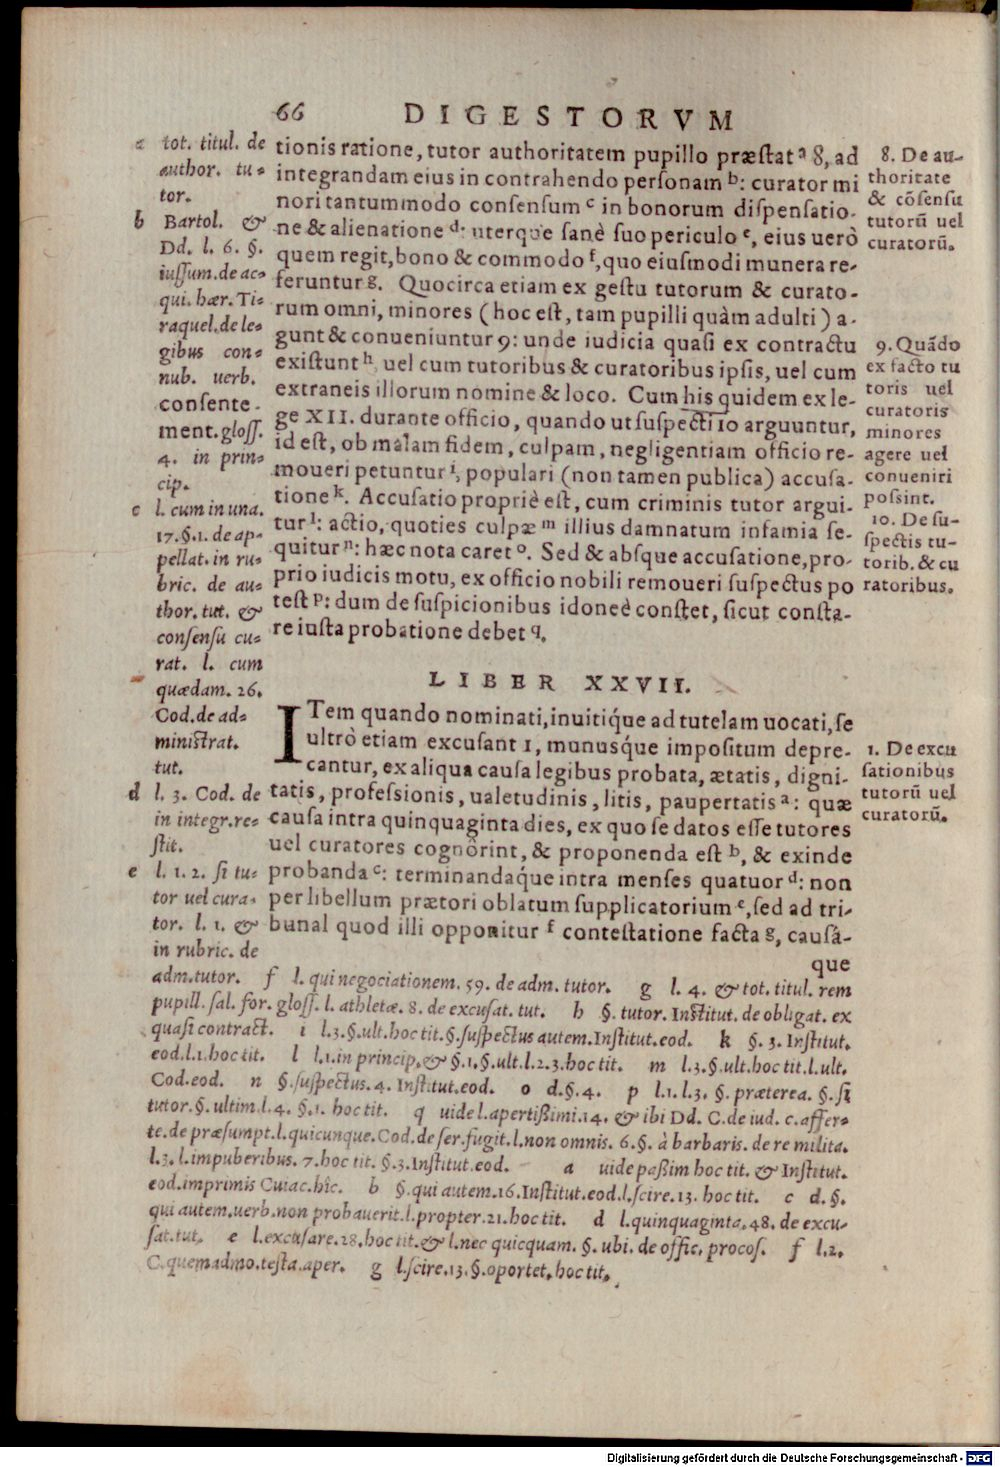 66 DIGESTORVM
tionis ratione, tutor authoritatem pupillo præstat a 8, ad
integrandam eius in contrahendo personam b: curator mi
nori tantummodo consensum c in bonorum dispensatio-
ne & alienatione d: uterque sanè suo periculo e, eius uerò
quem regit, bono & commodo f, quo eiusmodi munera re-
feruntur g. Quocirca etiam ex gestu tutorum & curato-
rum omni, minores (hoc est, tam pupilli quàm adulti) a-
gunt & conueniuntur 9: unde iudicia quasi ex contractu
existunt h, uel cum tutoribus & curatoribus ipsis, uel cum
extraneis illorum nomine & loco. Cum his quidem ex le-
ge XII. durante officio, quando ut suspecti 10 arguuntur,
id est, ob malam fidem, culpam, negligentiam officio re-
moueri petuntur i, populari (non tamen publica) accusa-
tione k. Accusatio propriè est, cum criminis tutor argui-
tur l: actio, quoties culpæ m illius damnatum infamia se-
quitur n: hæc nota caret o. Sed & absque accusatione, pro-
prio iudicis motu, ex officio nobili remoueri suspectus po
test p: dum de suspicionibus idoneè constet, sicut consta-
re iusta probatione debet q.
LIBER XXVII.
ITem quando nominati, inuitiq́ue ad tutelam uocati, se
ultrò etiam excusant 1, munusq́ue impositum depre-
cantur, ex aliqua causa legibus probata, ætatis, digni-
tatis, professionis, ualetudinis, litis, paupertatis a: quæ
causa intra quinquaginta dies, ex quo se datos esse tutores
uel curatores cognôrint, & proponenda est b, & exinde
probanda c: terminandaq́ue intra menses quatuor d: non
per libellum prætori oblatum supplicatorium e, sed ad tri-
bunal quod illi opponitur f contestatione facta g, causá-
que
a tot. titul. de
author. tu-
tor.
b Bartol. &
Dd. l. 6. §.
iussum. de ac-
qui. hær. Ti-
raquel. de le-
gibus con-
nub. uerb.
consente-
ment. gloss.
4. in prin-
cip.
c l. cum in una.
17. §. 1. de ap-
pellat. in ru-
bric. de au-
thor. tut. &
consensu cu-
rat. l. cum
quædam. 26.
Cod. de ad-
ministrat.
tut.
d l. 3. Cod. de
in integr. re-
stit.
e l. 1. 2. si tu-
tor uel cura-
tor. l. 1. &
in rubric. de
adm. tutor. f l. qui negociationem. 59. de adm. tutor. g l. 4. & tot. titul. rem
pupill. sal. for. gloss. l. athletæ. 8. de excusat. tut. h §. tutor. Institut. de obligat. ex
quasi contract. i l. 3. §. ult. hoc tit. §. suspectus autem. Institut. eod. k §. 3. Institut.
eod. l. 1. hoc tit. l l. 1. in princip. & §. 1. §. ult. l. 2. 3. hoc tit. m l. 3. §. ult. hoc tit. l. ult.
Cod. eod. n §. suspectus. 4. Institut. eod. o d. §. 4. p l. 1. l. 3. §. præterea. §. si
tutor. §. ultim. l. 4. §. 1. hoc tit. q uide l. apertißimi. 14. & ibi Dd. C. de iud. c. affer-
te. de præsumpt. l. quicunque. Cod. de ser. fugit. l. non omnis. 6. §. à barbaris. de re milita.
l. 3. l. impuberibus. 7. hoc tit. §. 3. Institut. eod. a uide paßim hoc tit. & Institut.
eod. imprimis Cuiac. hîc. b §. qui autem. 16. Institut. eod. l. scire. 13. hoc tit. c d. §.
qui autem. uerb. non probauerit. l. propter. 21. hoc tit. d l. quinquaginta. 48. de excu-
sat. tut. e l. excusare. 28. hoc tit. & l. nec quicquam. §. ubi. de offic. procos. f l. 2.
C. quemadmo. testa. aper. g l. scire. 13. §. oportet. hoc tit.
8. De au-
thoritate
& cõsensu
tutorũ uel
curatorũ.
9. Quãdo
ex facto tu
toris uel
curatoris
minores
agere uel
conueniri
possint.
10. De su-
spectis tu-
torib. & cu
ratoribus.
1. De excu
sationibus
tutorũ uel
curatorũ.
Digitalisierung gefördert durch die Deutsche Forschungsgemeinschaft - DFG